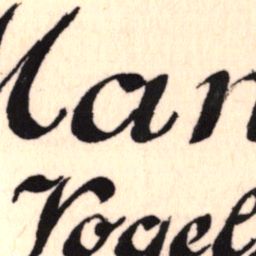 Man
Vogel